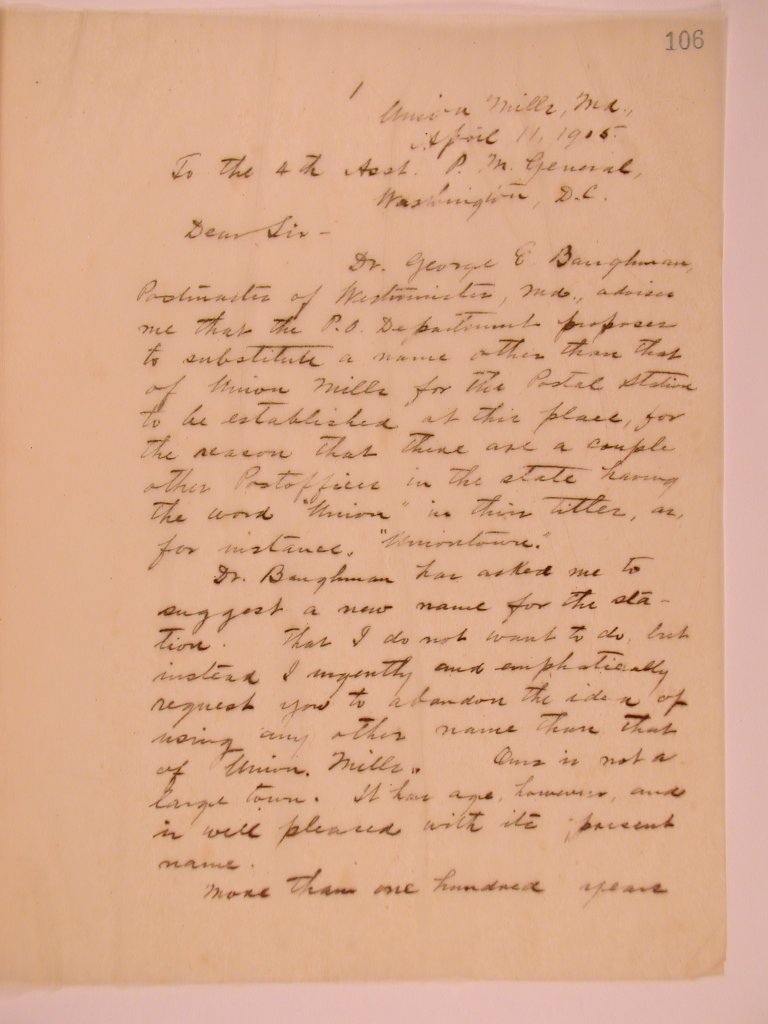 106
1
Union Mills, Md.,
April 11, 1905.
To the 4th Asst. P. M. General,
Washington, D.C.
Dear Sir -
Dr. George E. Baughman,
Postmaster of Westminster, Md., advises
me that the P.O. Department proposes
to substitute a name other than that
of Union Mills for the Postal Station
to be established at this place, for
the reason that there are a couple
other Postoffices in the state having
the word "Union" in their titles, as,
for instance, "Uniontown."
Dr. Baughman has asked me to
suggest a new name for the sta-
tion. That I do not want to do, but
instead I urgently and emphatically
request you to abandon the idea of
using any other name than that
of Union Mills. Ours is not a
large town. It has age, however, and
is well pleased with its present
name.
More than one hundred years